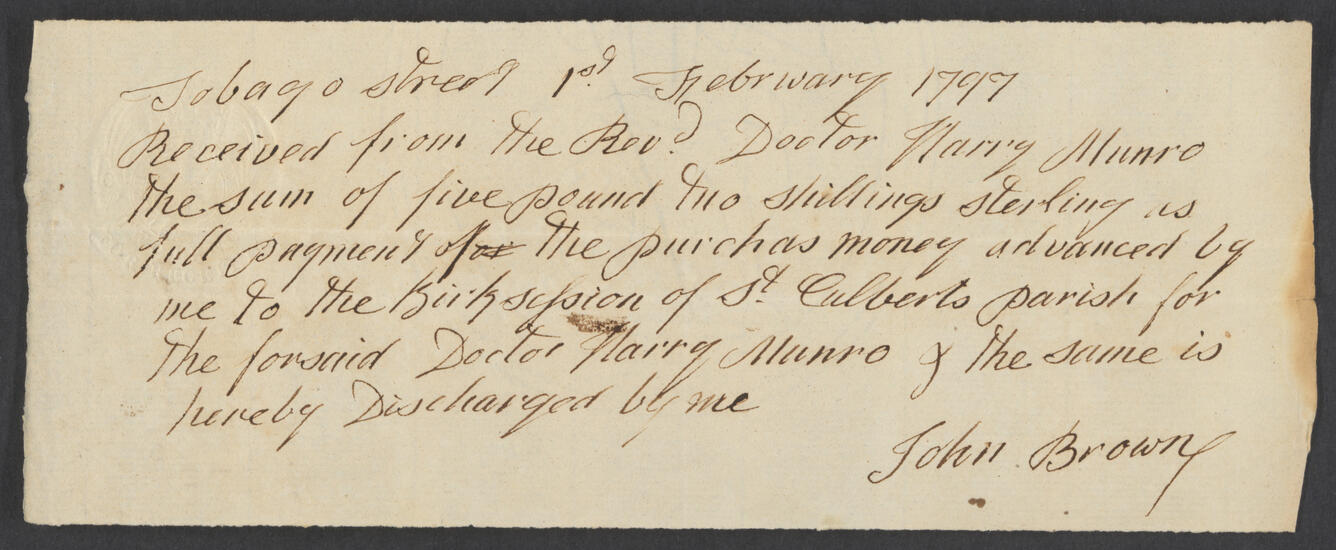 Tobago street 1st. February 1797
Received from the Revd. Doctor Harry Munro
the sum of five pound two shillings sterling as
full payment of the purchas money advanced by
me to the Kirk session of St. Culberts parish for
the forsaid Doctor Harry Munro & the same is
hereby Discharged by me
John Brown